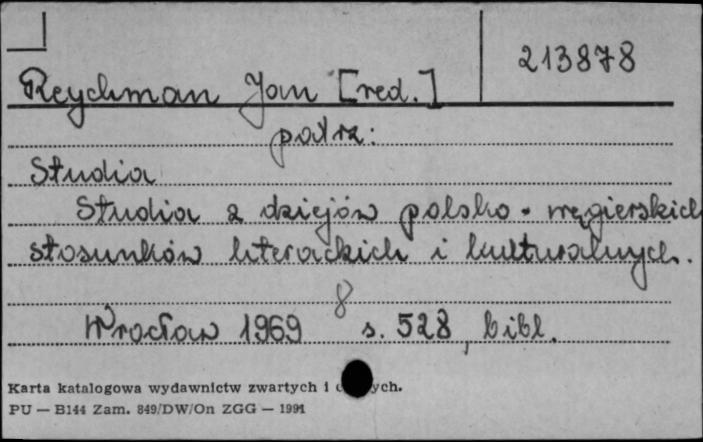 213878
Reychman Jan [red.]
patrz:
Studia
Studia z dziejów polsko-węgierskich
stosunków literackich i kulturalnych.
8
Wrocław 1969 s. 528, bibl.
Karta katalogowa wydawnictw zwartych i
PU — B144 Zam. 849/DW/On ZGG — 1991